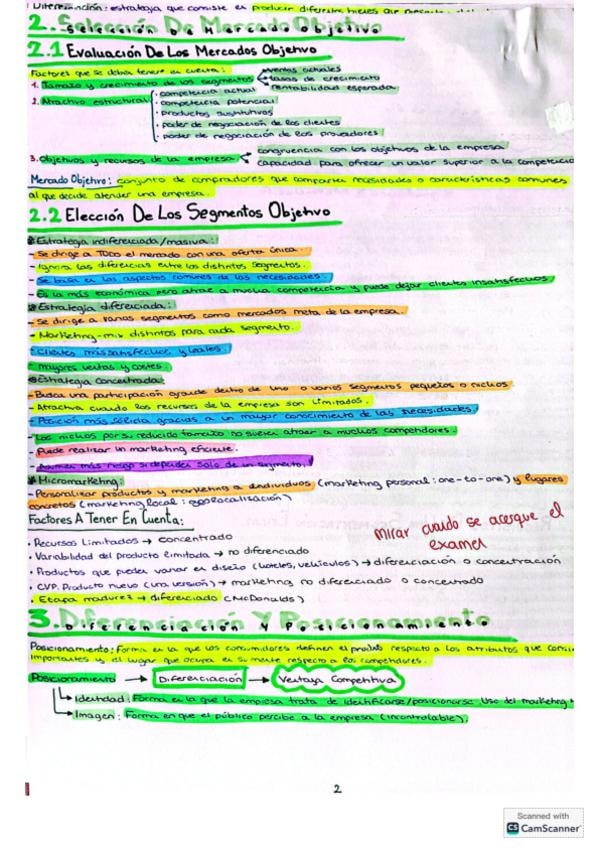 Diferenciación: estrategia que consiste en producir diferentes bienes que
2. Selección De Mercado Objetivo
2.1 Evaluación De Los Mercados Objetivo
Factores que se deben tener en cuenta:
1. Tamaño y crecimiento de los segmentos
ventas actuales
tasas de crecimiento
rentabilidad esperada
2. Atractivo estructural
· competencia actual
· competencia potencial
· productos sustitutivos
· poder de negociación de los clientes
· poder de negociación de los proveedores
3. Objetivos y recursos de la empresa
congruencia con los objetivos de la empresa
capacidad para ofrecer un valor superior a la competencia
Mercado Objetivo: conjunto de compradores que comparten necesidades o características comunes
al que decide atender una empresa.
2.2 Elección De Los Segmentos Objetivo
Estrategia indiferenciada/masiva:
- Se dirige a TODO el mercado con una oferta única.
- Ignora las diferencias entre los distintos segmentos.
- Se basa en los aspectos comunes de las necesidades.
- Es la más económica pero atrae a mucha competencia y puede dejar clientes insatisfechos.
Estrategia diferenciada:
- Se dirige a varios segmentos como mercados meta de la empresa.
- Marketing-mix distintos para cada segmento.
- Clientes más satisfechos y leales.
- Mayores ventas y costes.
Estrategia Concentrada:
- Busca una participación grande dentro de uno o varios segmentos pequeños o nichos.
- Atractiva cuando los recursos de la empresa son limitados.
- Posición más sólida gracias a un mayor conocimiento de las necesidades.
- Los nichos por su reducido tamaño no suelen atraer a muchos competidores.
- Puede realizar un marketing eficiente.
- Asumen más riesgo si dependen solo de un segmento.
Micromarketing:
- Personalizar productos y marketing a individuos (marketing personal: one-to-one) y lugares
concretos (marketing local: geolocalización)
Factores A Tener En Cuenta:
Mirar cuando se acerque el
examen
· Recursos Limitados → concentrado
· Variabilidad del producto limitada → no diferenciado
· Productos que pueden variar en diseño (hoteles, vehículos) → diferenciación o concentración
· CVP. Producto nuevo (una versión) → marketing no diferenciado o concentrado
· Etapa madurez → diferenciado (McDonalds)
3. Diferenciación Y Posicionamiento
Posicionamiento: Forma en la que los consumidores definen el producto respecto a los atributos que consi
importantes y el lugar que ocupa en su mente respecto a los competidores.
Posicionamiento → Diferenciación → Ventaja Competitiva
Identidad: Forma en la que la empresa trata de identificarse/posicionarse. Uso del marketing
Imagen: Forma en que el público percibe a la empresa (incontrolable).
2
Scanned with
CS CamScanner